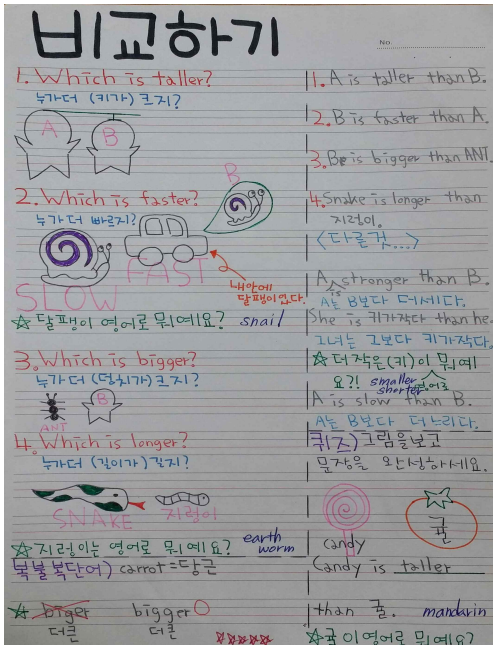 비교하기
No.
1. Which is taller?
누가더 (키가) 크지?
A
B
2. Which is faster?
누가더 빠르지?
B
SLOW
FAST
내안에
달팽이있다!
☆ 달팽이 영어로 뭐예요? snail
3. Which is bigger?
누가더 (덩치가) 크지?
ANT
B
4. Which is longer?
누가더 (길이가) 길지?
SNAKE
지렁이
☆ 지렁이는 영어로 뭐예요? earth
worm
복불복단어) carrot=당근
☆ biger bigger O
더큰 더큰
☆☆☆☆☆
1. A is taller than B.
2. B is faster than A.
3. B is bigger than ANT.
4. Snake is longer than
지렁이.
<다른것...>
A is stronger than B.
A는 B보다 더세다.
She is 키가작다 than he.
그녀는 그보다 키가작다.
☆ 더작은(키)이 뭐예
요?! 영어로
smaller
shorter
A is slow than B.
A는 B보다 더느리다.
퀴즈) 그림을보고
문장을 완성하세요.
candy
귤
Candy is taller
than 귤. mandarin
☆귤이영어로 뭐예요?